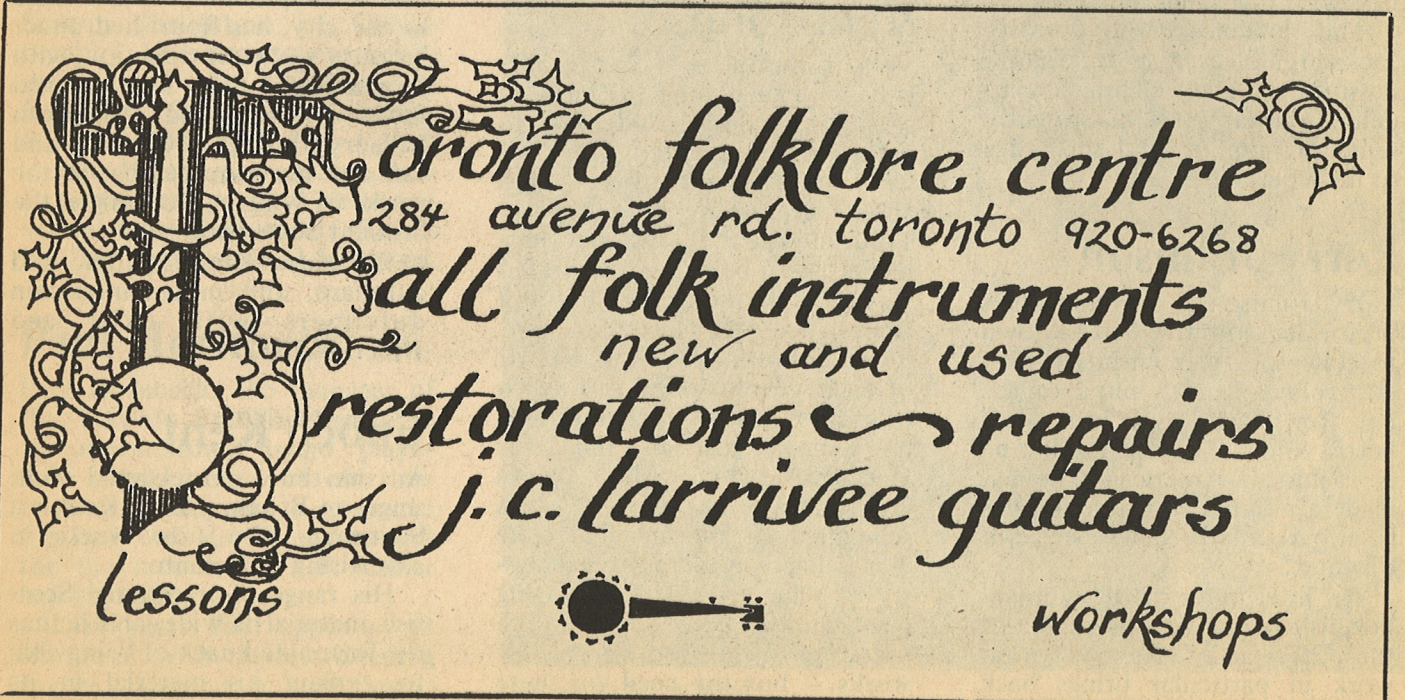 Toronto folklore centre
284 avenue rd. toronto 920-6268
all folk instruments
new and used
restorations ~ repairs
j.c. larrivée guitars
lessons
workshops